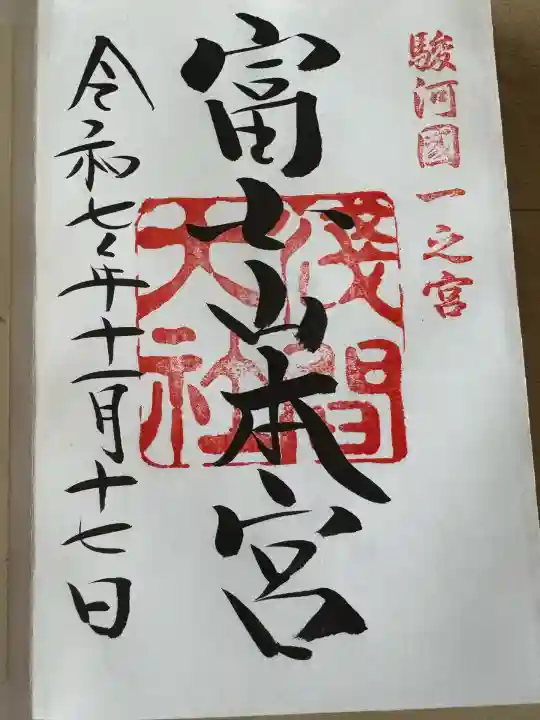 駿河國一之宮
富士山本宮
淺間
大社
令和七年十一月十七日